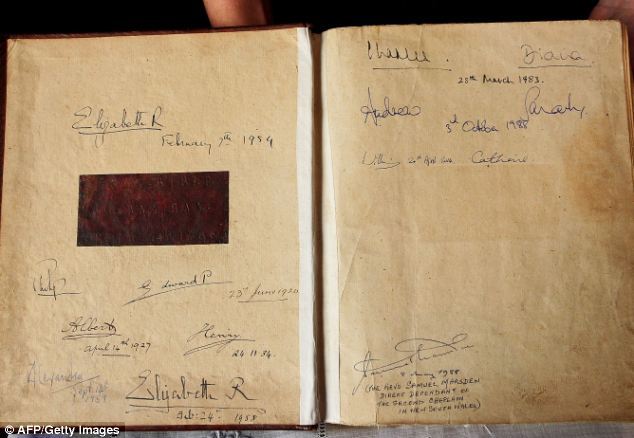 Elizabeth R
February 7th 1954
Philip
Edward P
23rd June 1920
Albert
April 14th 1927
Henry
24 11 34.
Alexandra
Sept
1959
Elizabeth R
Feb: 24th 1958
Charles. Diana.
28th March 1983.
Andrew Sarah
3rd October 1988
William Catherine
1988
(THE REVD SAMUEL MARSDEN
DIRECT DEFENDANT OF
THE SECOND CHAPLAIN
IN NEW SOUTH WALES)
© AFP/Getty Images